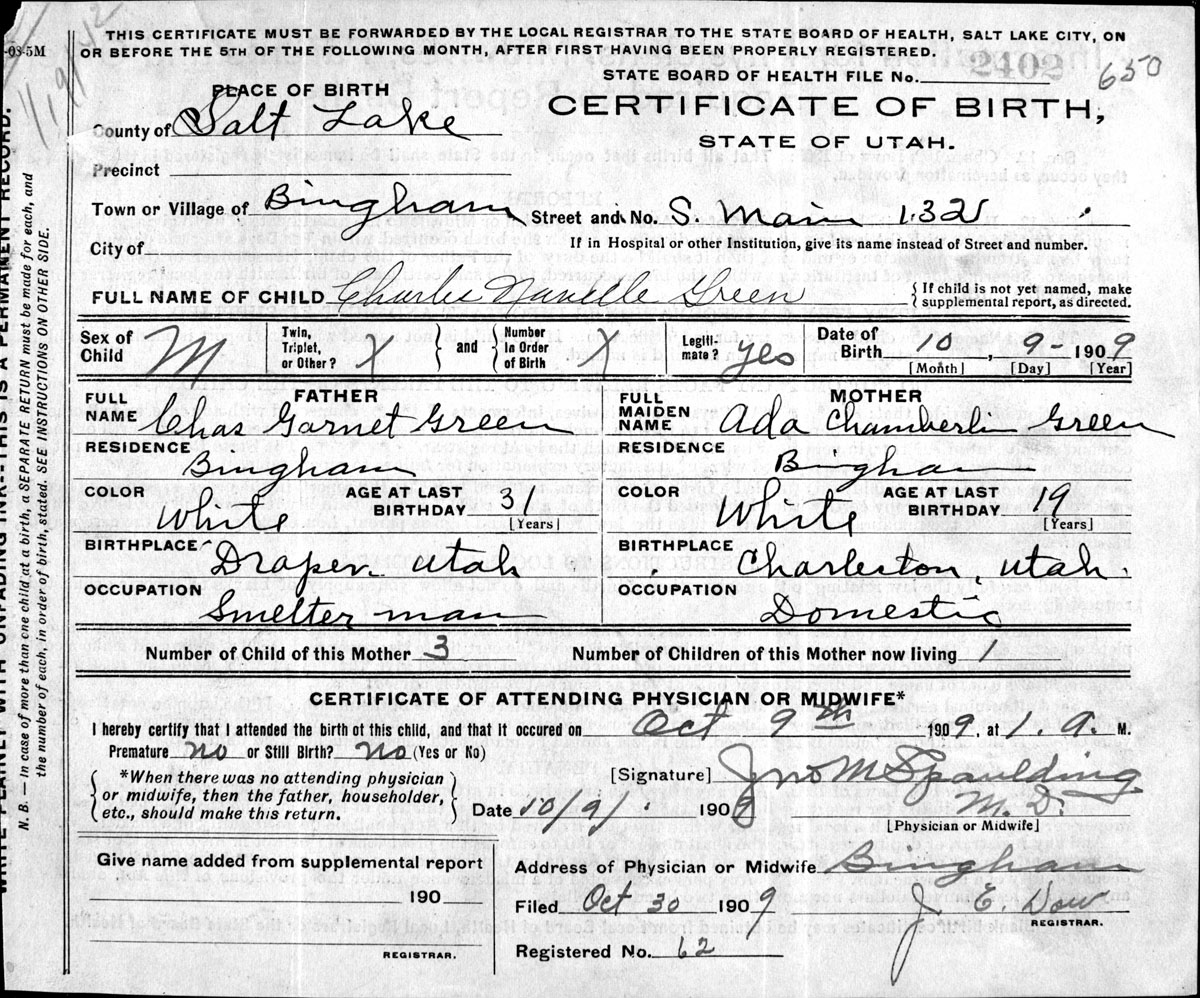 THIS CERTIFICATE MUST BE FORWARDED BY THE LOCAL REGISTRAR TO THE STATE BOARD OF HEALTH, SALT LAKE CITY, ON
OR BEFORE THE 5TH OF THE FOLLOWING MONTH, AFTER FIRST HAVING BEEN PROPERLY REGISTERED.
-08-5M
STATE BOARD OF HEALTH FILE No. 2402 650
PLACE OF BIRTH
CERTIFICATE OF BIRTH,
STATE OF UTAH.
County of Salt Lake
Precinct
Town or Village of Bingham Street and No. S. Main 132
City of
If in Hospital or other Institution, give its name instead of Street and number.
FULL NAME OF CHILD Charles Green { If child is not yet named, make supplemental report, as directed.
Sex of Child M Twin, Triplet, or Other? X } and { Number In Order of Birth X Legiti-mate? yes Date of Birth 10, 9- 1909
[Month] [Day] [Year]
FATHER
FULL NAME Chas Garnet Green
RESIDENCE Bingham
COLOR White AGE AT LAST BIRTHDAY 31 [Years]
BIRTHPLACE Draper Utah
OCCUPATION Smelter man
MOTHER
FULL MAIDEN NAME Ada Chamberlin Green
RESIDENCE Bingham
COLOR White AGE AT LAST BIRTHDAY 19 [Years]
BIRTHPLACE Charleston, Utah.
OCCUPATION Domestic
Number of Child of this Mother 3 Number of Children of this Mother now living 1
CERTIFICATE OF ATTENDING PHYSICIAN OR MIDWIFE*
I hereby certify that I attended the birth of this child, and that it occured on Oct 9th 1909, at 1. A. M.
Premature no or Still Birth? No (Yes or No)
{ *When there was no attending physician or midwife, then the father, householder, etc., should make this return. }
[Signature] Jno M Spaulding
M. D.
Date 10/9/ 1909
[Physician or Midwife]
Give name added from supplemental report
190
REGISTRAR.
Address of Physician or Midwife Bingham
Filed Oct 30 1909 J. E.
REGISTRAR.
Registered No. 62
WRITE PLAINLY WITH UNFADING INK--THIS IS A PERMAMENT RECORD.
N. B. — In case of more than one child at a birth, a SEPARATE RETURN must be made for each, and
the number of each, in order of birth, stated. SEE INSTRUCTIONS ON OTHER SIDE.